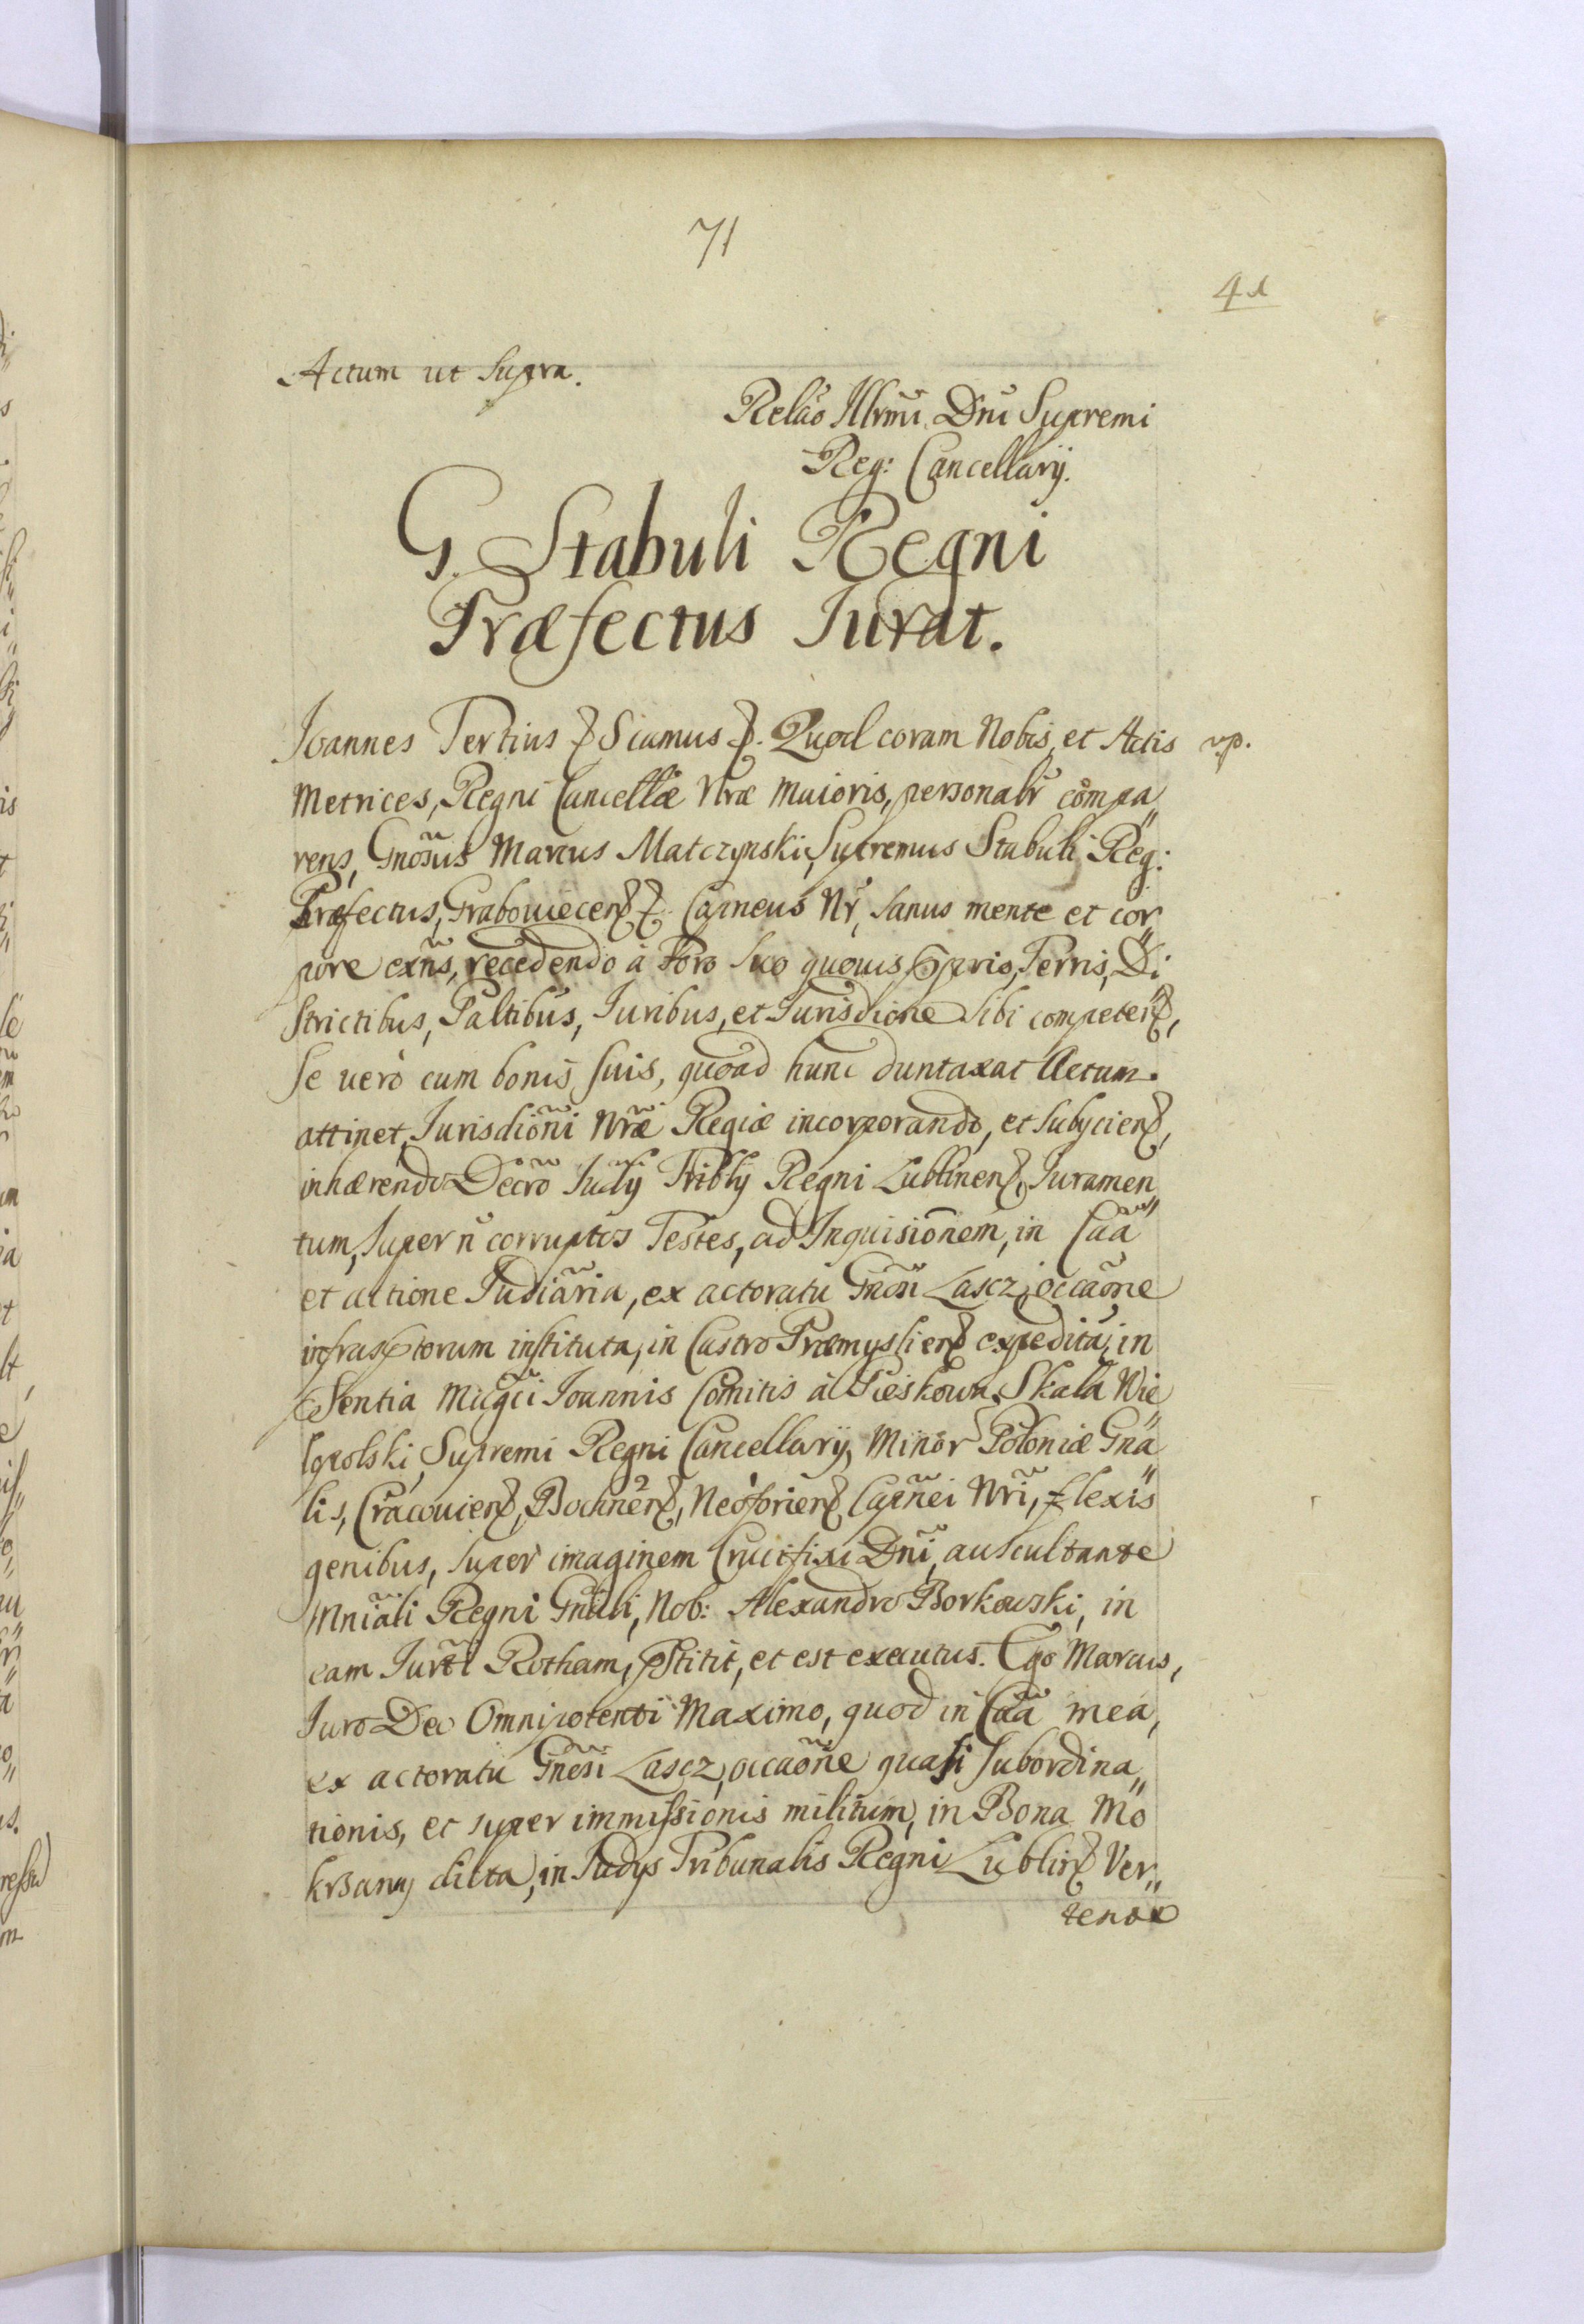 71
41
Actum ut supra.
Relão Illrmi Dñi Supremi
Reg: Cancellarij.
G. Stabuli Regni
Præfectus Iurat.
Ioannes Tertius & Siamus &. Quod coram Nobis, et Actis
vp.
Metrices, Regni Cancellæ Nræ Maioris, personalr compa„
rens, Gnõsus Marcus Matczynski, Supremus Stabuli Reg:
Præfectus, Grabouiecen & Capneus Nr, sanus mente et cor„
pore exñs, recedendo à Foro suo quouis pprio, Terris, Di„
strictibus, Paltibus, Iuribus, et Iurisdione sibi competen,
se verò cum bonis suis, quoad hunc duntaxat Actum
attinet, Iurisdiõni Nræ Regiæ incorporando, et subijcien,
inhærendo Decro Iudij Triblij Regni Lublinen, Iuramen„
tum, super ñ corruptos Testes, ad Inquisiõnem, in Caã
et actione Iudiãria, ex actoratu Gnõsi Lascz, occaõne
infrasptorum instituta, in Castro Præmyslien expedita, in
pSentia Mãgci Ioannis Comitis à Pieskowa Skała Wie„
lopolski, Supremi Regni Cancellarij, Minor Poloniæ Gna„
lis, Cracouien, Bochnen, Neoforien Capnei Nri, flexis
genibus, super imaginem Crucifixi Dñi, auscultante
Mniãli Regni Gnãli, Nob: Alexandro Borkowski, in
eam Iurti Rotham, pstitit, et est executus. Ego Marcus,
Iuro Deo Omnipotenti Maximo, quod in Caã mea,
ex actoratu Gnesi Lascz, occaõne quasi subordina„
tionis, et super immissionis militum, in Bona Mo
krsany dicta, in Iudijs Tribunalis Regni Lublin Ver„
tenti